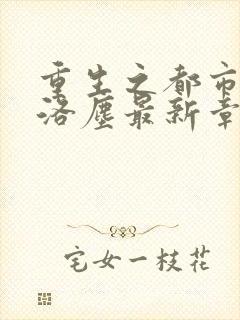 重生之都市
洛尘最新章
宅女一枝花